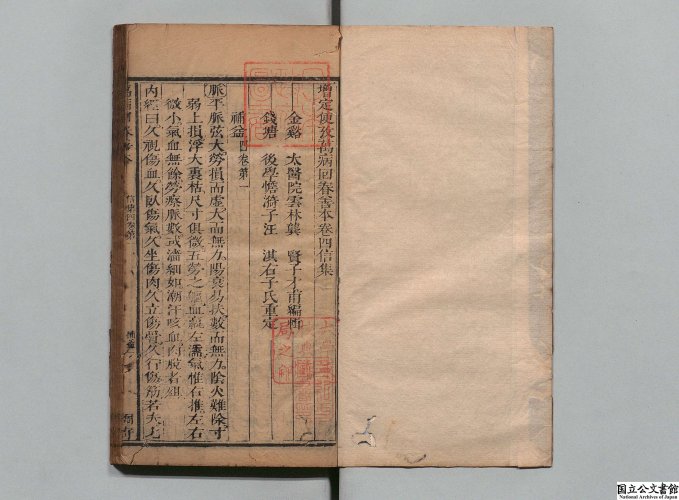 增定便攷萬病回春善本卷四信集
金谿 太醫院雲林龔 賢子才甫編輯
錢塘 後學憺漪子汪 淇右子氏重定
補益 四卷第一
脈平脈弦大勞損而虛大而無力陽衰易扶數而無力陰火難除寸
弱上損浮大裏枯尺寸俱微五勞之軀血羸左濡氣怯右推左右
微小氣血無餘勞瘵脈數或濇細如潮汗咳血肉脫者殂
內經曰久視傷血久臥傷氣久坐傷肉久立傷骨久行傷筋若夫七
国立公文書館
National Archives of Japan